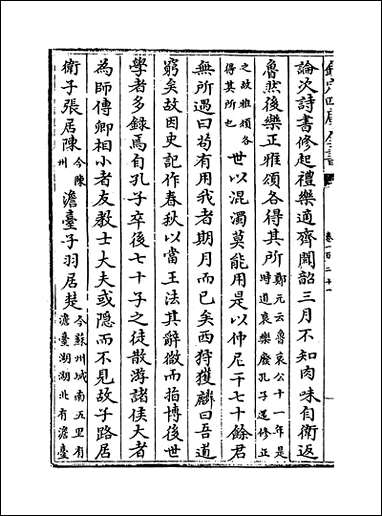 欽定四庫全書
卷一百二十一
論次詩書修起禮樂適齊聞韶三月不知肉味自衛返
魯然後樂正雅頌各得其所鄭元云魯哀公十一年是時道衰樂廢孔子還修正
之故雅頌各得其所也世以混濁莫能用是以仲尼干七十餘君
無所遇曰苟有用我者期月而已矣西狩獲麟曰吾道
窮矣故因史記作春秋以當王法其辭微而指博後世
學者多錄焉自孔子卒後七十子之徒散游諸侯大者
為師傅卿相小者友教士大夫或隱而不見故子路居
衛子張居陳今陳州澹臺子羽居楚今蘇州城南五里有澹臺湖湖北有澹臺